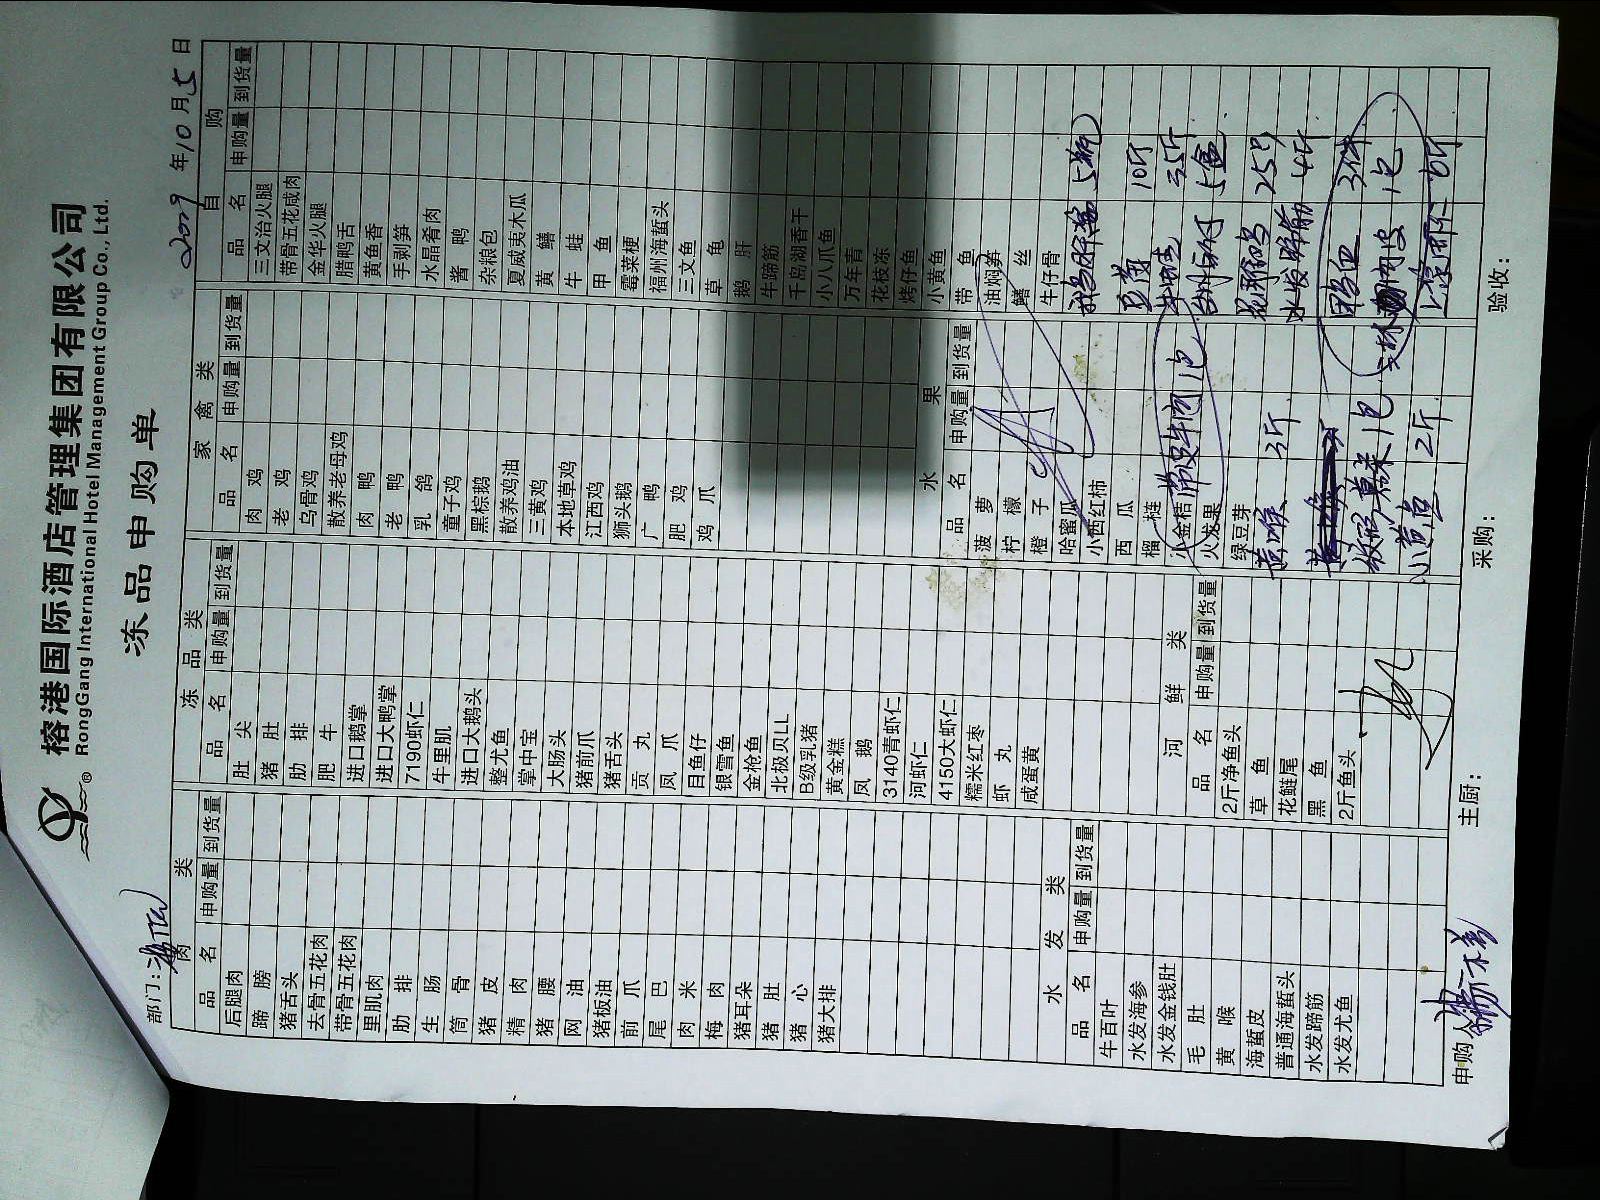 榕港国际酒店管理集团有限公司
® RongGang International Hotel Management Group Co., Ltd.
冻品申购单
部门：
2009 年 10 月 5 日
肉 类
品 名 申购量 到货量
后腿肉
蹄 膀
猪舌头
去骨五花肉
带骨五花肉
里肌肉
肋 排
生 肠
筒 骨
猪 皮
精 肉
猪 腰
网 油
猪板油
前 爪
尾 巴
肉 米
梅 肉
猪耳朵
猪 肚
猪 心
猪大排
水 发 类
品 名 申购量 到货量
牛百叶
水发海参
水发金钱肚
毛 肚
黄 喉
海蜇皮
普通海蜇头
水发蹄筋
水发尤鱼
冻 品 类
品 名 申购量 到货量
肚 尖
猪 肚
肋 排
肥 牛
进口鹅掌
进口大鸭掌
7190虾仁
牛里肌
进口大鹅头
整尤鱼
掌中宝
大肠头
猪前爪
猪舌头
贡 丸
凤 爪
目鱼仔
银雪鱼
金枪鱼
北极贝LL
B级乳猪
黄金糕
凤 鹅
3140青虾仁
河虾仁
4150大虾仁
糯米红枣
虾 丸
咸蛋黄
河 鲜 类
品 名 申购量 到货量
2斤净鱼头
草 鱼
花鲢尾
黑 鱼
2斤鱼头
家 禽 类
品 名 申购量 到货量
肉 鸡
老 鸡
乌骨鸡
散养老母鸡
肉 鸭
老 鸭
乳 鸽
童子鸡
黑棕鹅
散养鸡油
三黄鸡
本地草鸡
江西鸡
狮头鹅
广 鸭
肥 鸡
鸡 爪
水 果
品 名 申购量 到货量
菠 萝
柠 檬
橙 子
哈蜜瓜
小西红柿
西 瓜
榴 梿
小金桔 带皮牛肉 1包
火龙果
绿豆芽
黄喉 3斤
1包
小黄鱼 2斤
自 购
品 名 申购量 到货量
三文治火腿
带骨五花咸肉
金华火腿
腊鸭舌
黄鱼香
手剥笋
水晶肴肉
酱 鸭
杂粮包
夏威夷木瓜
黄 鳝
牛 蛙
甲 鱼
霉菜梗
福州海蜇头
三文鱼
草 龟
鹅 肝
牛蹄筋
千岛湖香干
小八爪鱼
万年青
花枝冻
烤仔鱼
小黄鱼
带 鱼
油焖笋
鳝 丝
牛仔骨
5瓶
10斤
牛蛙 35斤
5盒
25只
水发蹄筋 4斤
1包
申购人：
主厨：
采购：
验收：